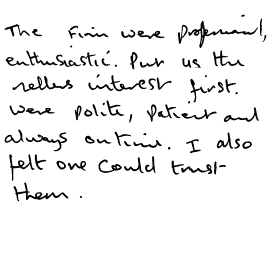 The Firm were professional,
enthusiastic. Put us the
sellers interest first.
Were polite, patient and
always on time. I also
felt one could trust
them.